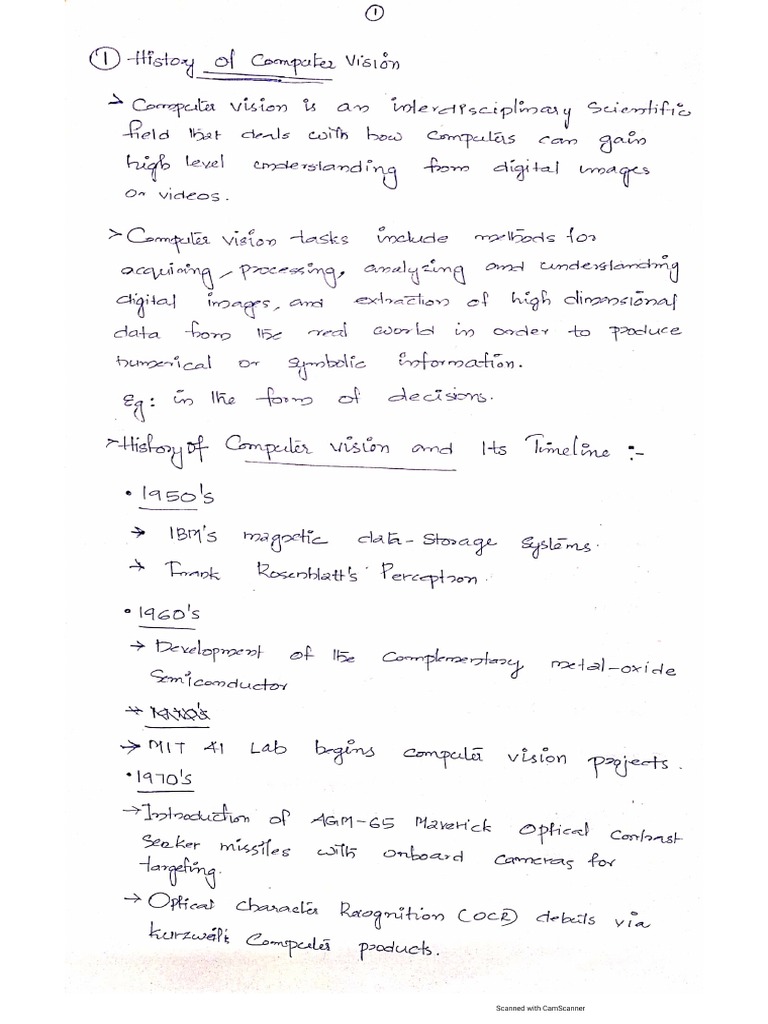 1
① History of Computer Vision
> Computer vision is an interdisciplinary Scientific
field that deals with how computers can gain
high level understanding from digital images
or videos.
> Computer vision tasks include methods for
acquiring, processing, analyzing and understanding
digital images, and extraction of high dimensional
data from the real world in order to produce
numerical or symbolic information.
Eg: in the form of decisions.
> History of Computer vision and Its Timeline :-
• 1950's
→ IBM's magnetic data-Storage Systems.
→ Frank Rosenblatt's Perceptron.
• 1960's
→ Development of the Complementary metal-oxide
Semiconductor
→ MIT AI Lab begins computer vision projects.
• 1970's
→ Introduction of AGM-65 Maverick Optical Contrast
Seeker missiles with onboard cameras for
targeting.
→ Optical character Recognition (OCR) debuts via
Kurzweil Computer products.
Scanned with CamScanner